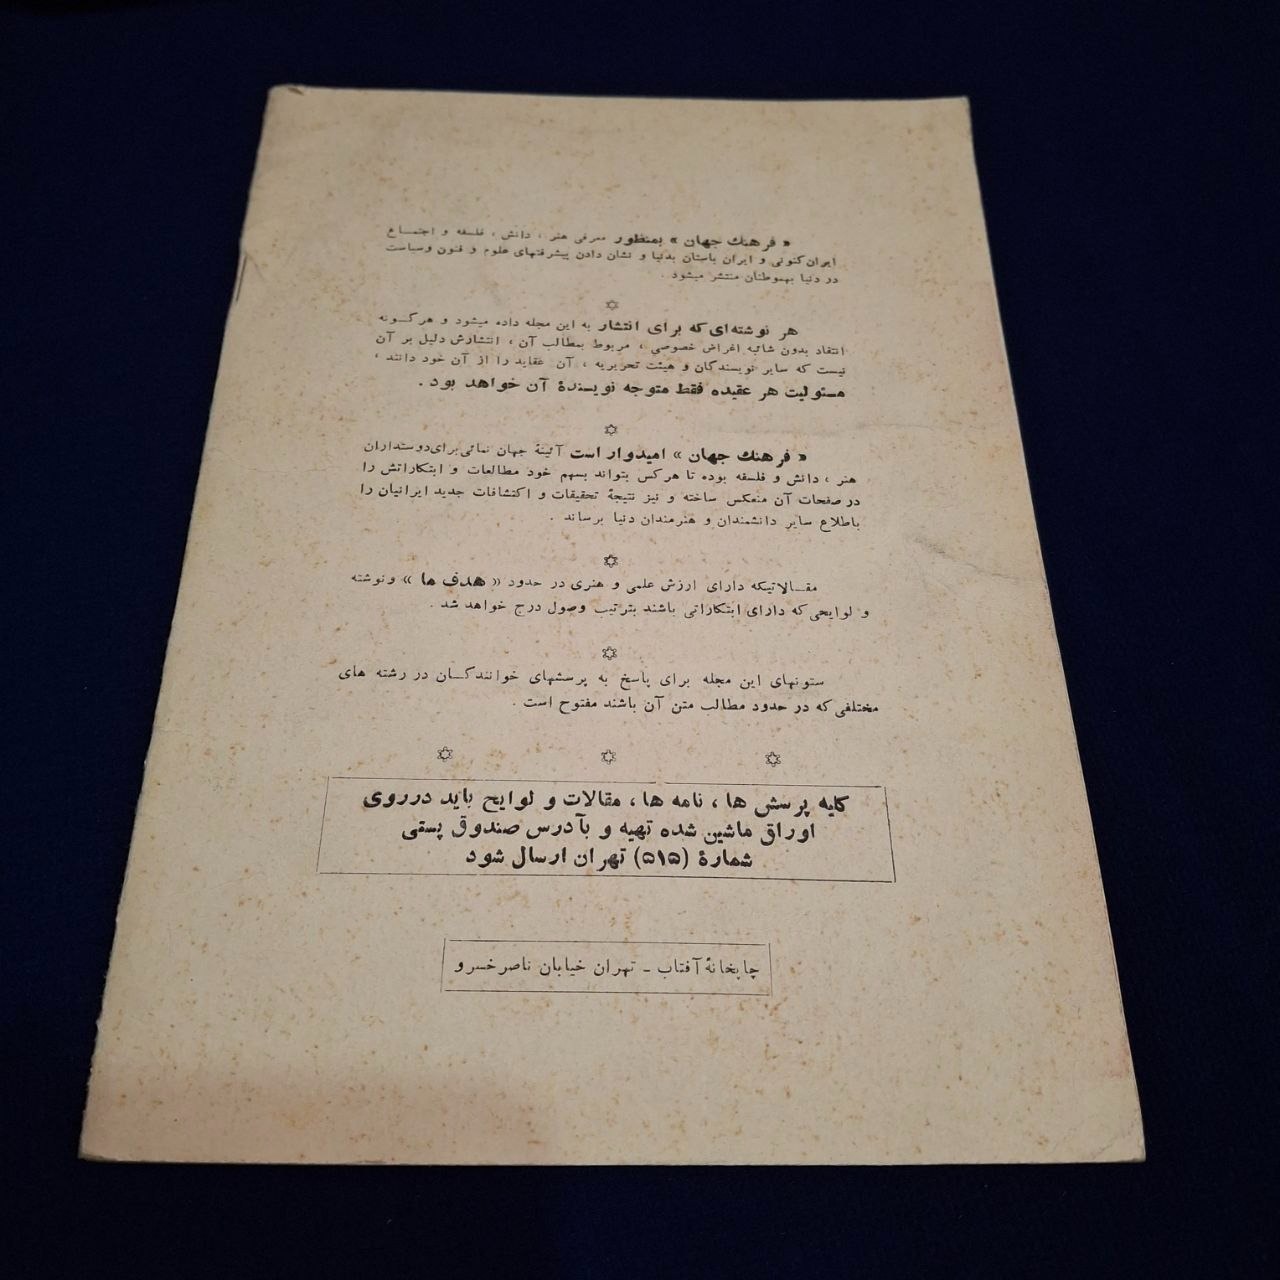 « فرهنك جهان » بمنظور معرفی هنر ، دانش ، فلسفه و اجتمـاع
ایران کنونی و ایران باستان بدنیا و نشان دادن پیشرفتهای علوم و فنون وسیاست
در دنیا بهموطنان منتشر میشود .
هر نوشته‌ای که برای انتشار به این مجله داده میشود و هرگـونه
انتقاد بدون شائبه اغراض خصوصی ، مربوط بمطالب آن ، انتشارش دلیل بر آن
نیست که سایر نویسندگان و هیئت تحریریه ، آن عقاید را از آن خود دانند ،
مسئولیت هر عقیده فقط متوجه نویسندهٔ آن خواهد بود .
« فرهنك جهان » امیدوار است آئینهٔ جهان نمائی برای دوستداران
هنر ، دانش و فلسفه بوده تا هرکس بتواند بسهم خود مطالعات و ابتکاراتش را
در صفحات آن منعکس ساخته و نیز نتیجهٔ تحقیقات و اکتشافات جدید ایرانیان را
باطلاع سایر دانشمندان و هنرمندان دنیا برساند .
مقـالاتیکه دارای ارزش علمی و هنری در حدود « هدف ما » ونوشته
و لوایحی که دارای ابتکاراتی باشند بترتیب وصول درج خواهد شد .
ستونهای این مجله برای پاسخ به پرسشهای خوانندگـان در رشته های
مختلفی که در حدود مطالب متن آن باشند مفتوح است .
کلیه پرسش ها ، نامه ها ، مقالات و لوایح باید درروی
اوراق ماشین شده تهیه و بآدرس صندوق پستی
شمارهٔ (۵۱۵) تهران ارسال شود
چاپخانهٔ آفتاب ـ تهران خیابان ناصرخسرو